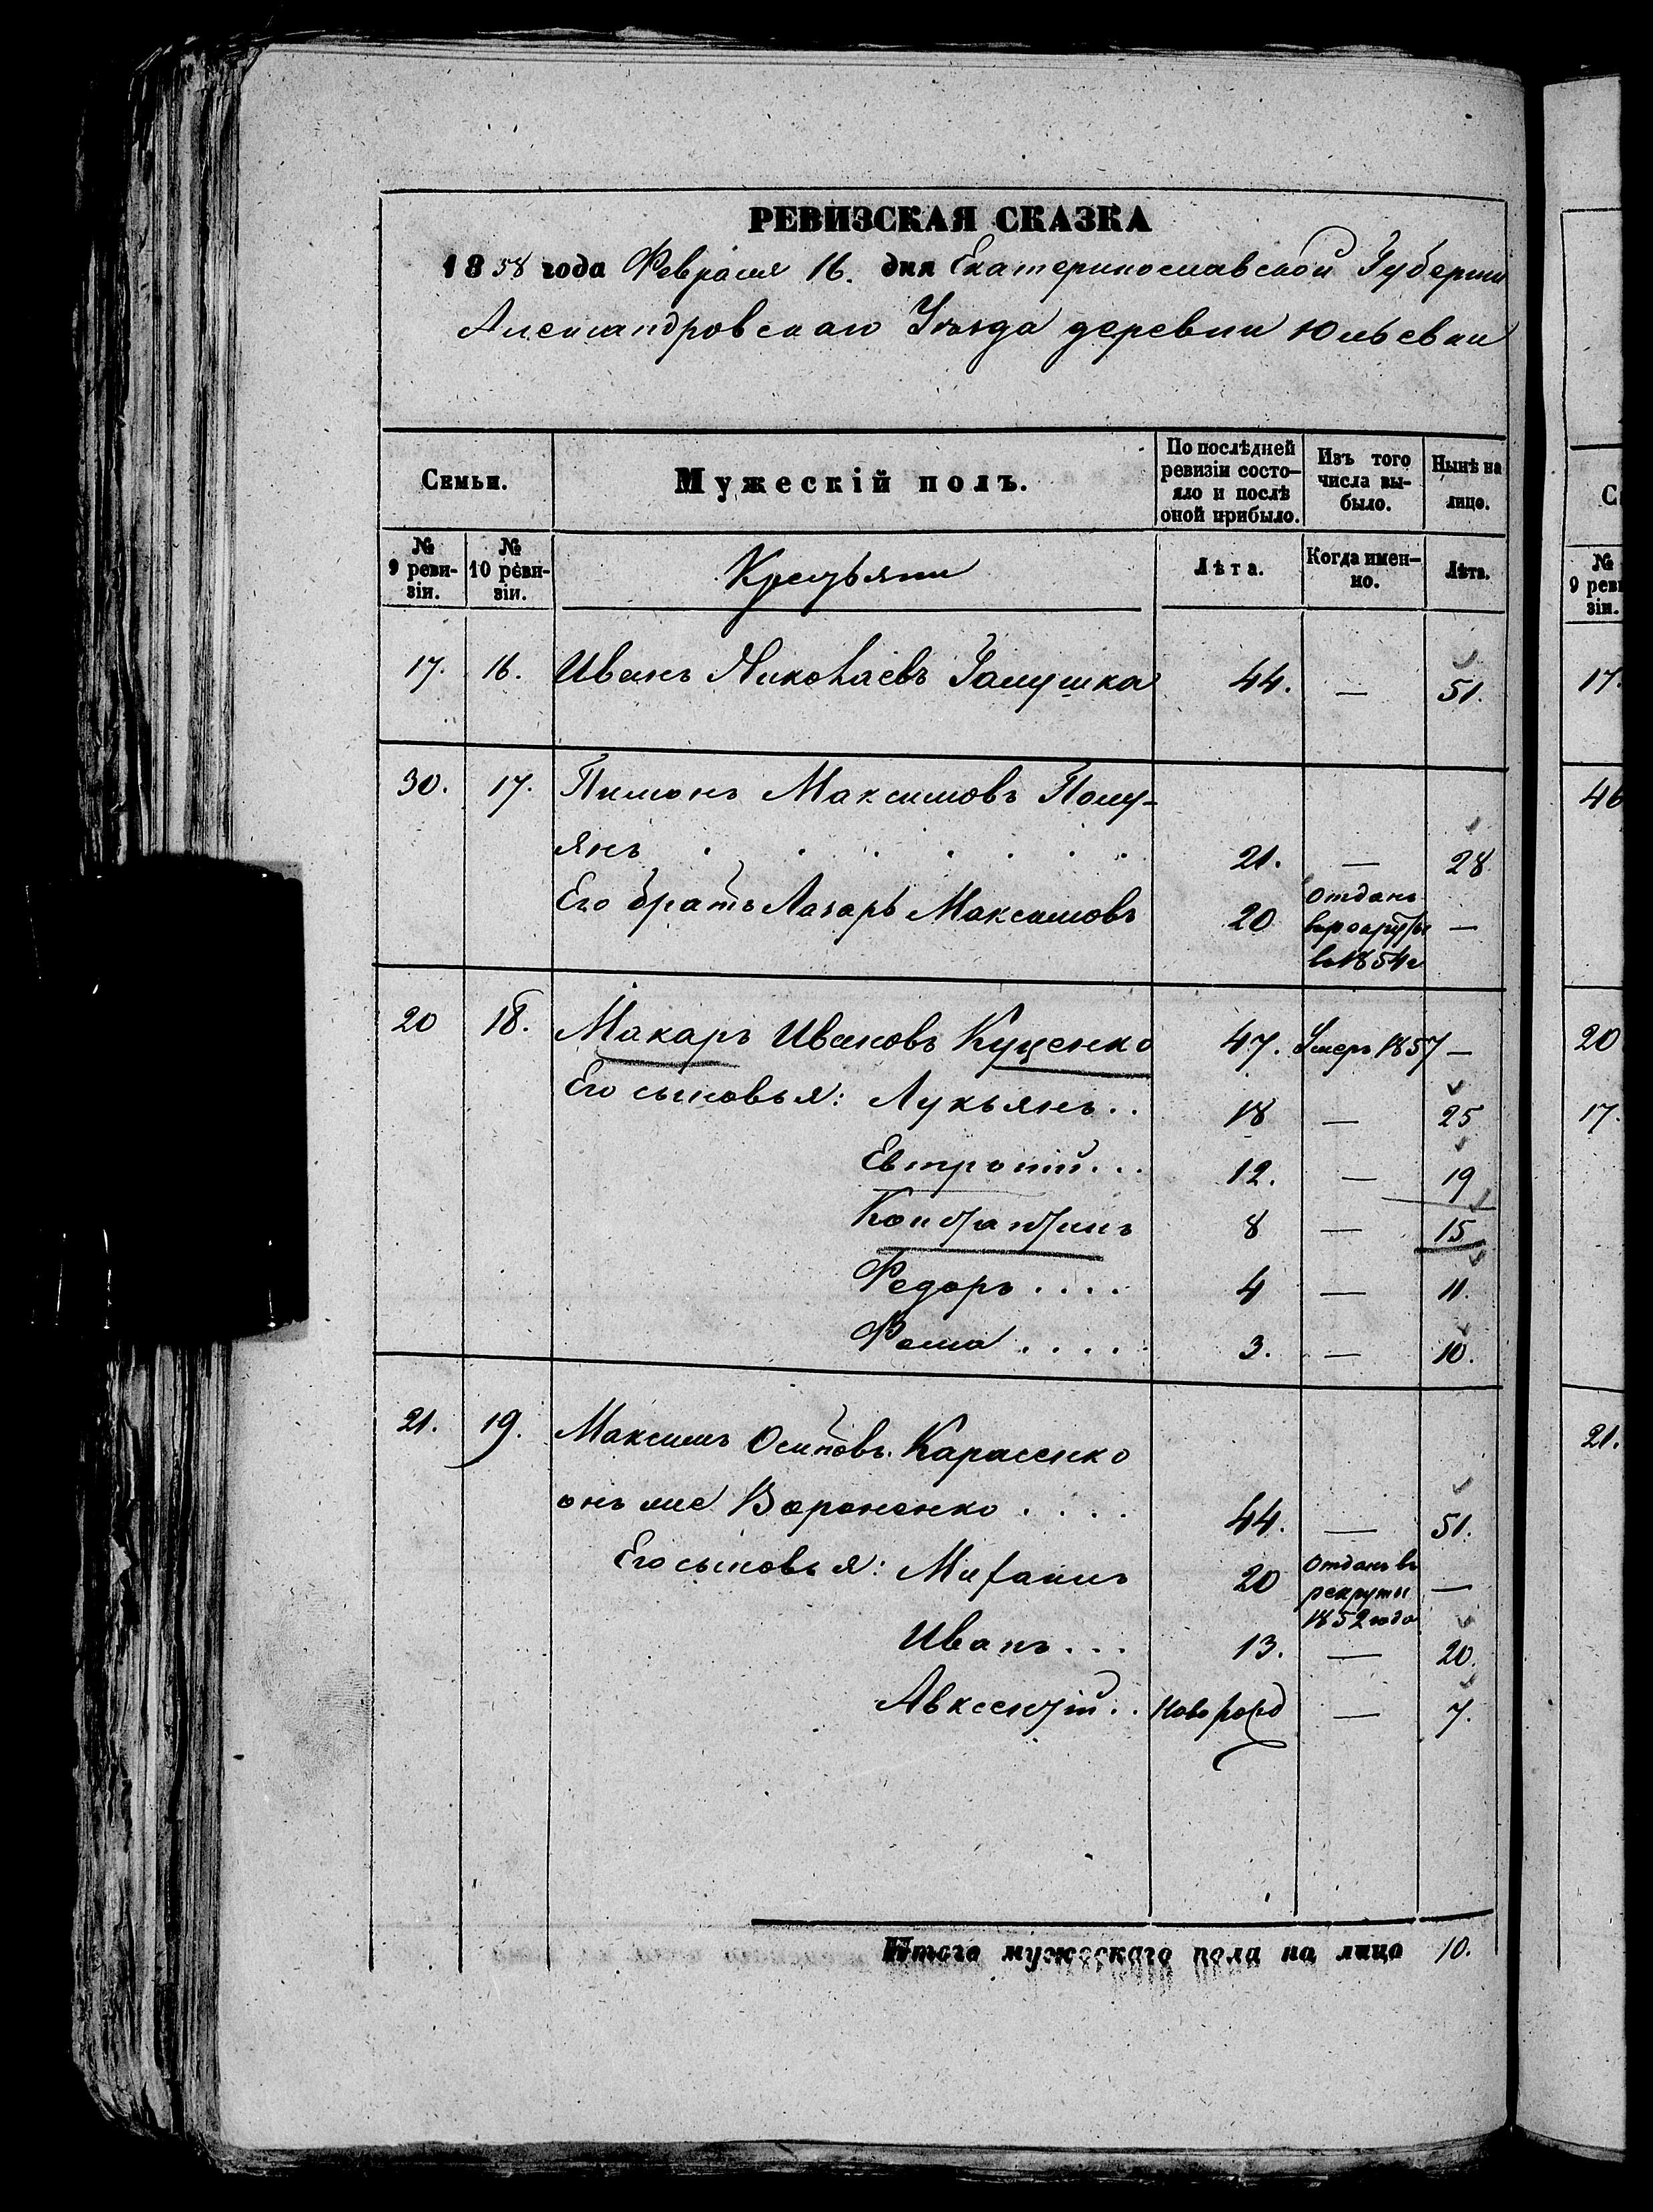 РЕВИЗСКАЯ СКАЗКА
1858 года Февраля 16. дня Екатеринославской Губернии
Александровскаго Уѣзда деревни Юльевки
Семьи.
Мужескій полъ.
По послѣдней ревизіи состояло и послѣ оной прибыло.
Изъ того числа выбыло.
Нынѣ на лицо.
№ 9 ревизіи.
№ 10 ревизіи.
Крестьяне
Лѣта.
Когда именно.
Лѣта.
17. 16. Иванъ Николаевъ Галушка 44. — 51.
30. 17. Пимонъ Максимовъ Полу-
янъ . . . . . . . . 21. — 28
Его братъ Лазарь Максимовъ 20 Отданъ в рекруты в 1854 г —
20 18. Макаръ Ивановъ Куценко 47. Умеръ 1857 —
Его сыновья: Лукьянъ . . 18 — 25
Евтропій . . . 12. — 19
Константинъ 8 — 15
Федоръ . . . . 4 — 11.
Фома . . . . 3. — 10.
21. 19. Максимъ Осиповъ Карасенко
онъ же Вороненко . . . . 44. — 51.
Его сыновья: Митрофанъ 20 Отданъ въ рекруты 1852 года —
Иванъ . . . 13. — 20.
Авксентій . . Новорожд — 7.
Итого мужескаго пола на лицо 10.
С
№ 9 реви зіи.
17.
46
20
17.
21.